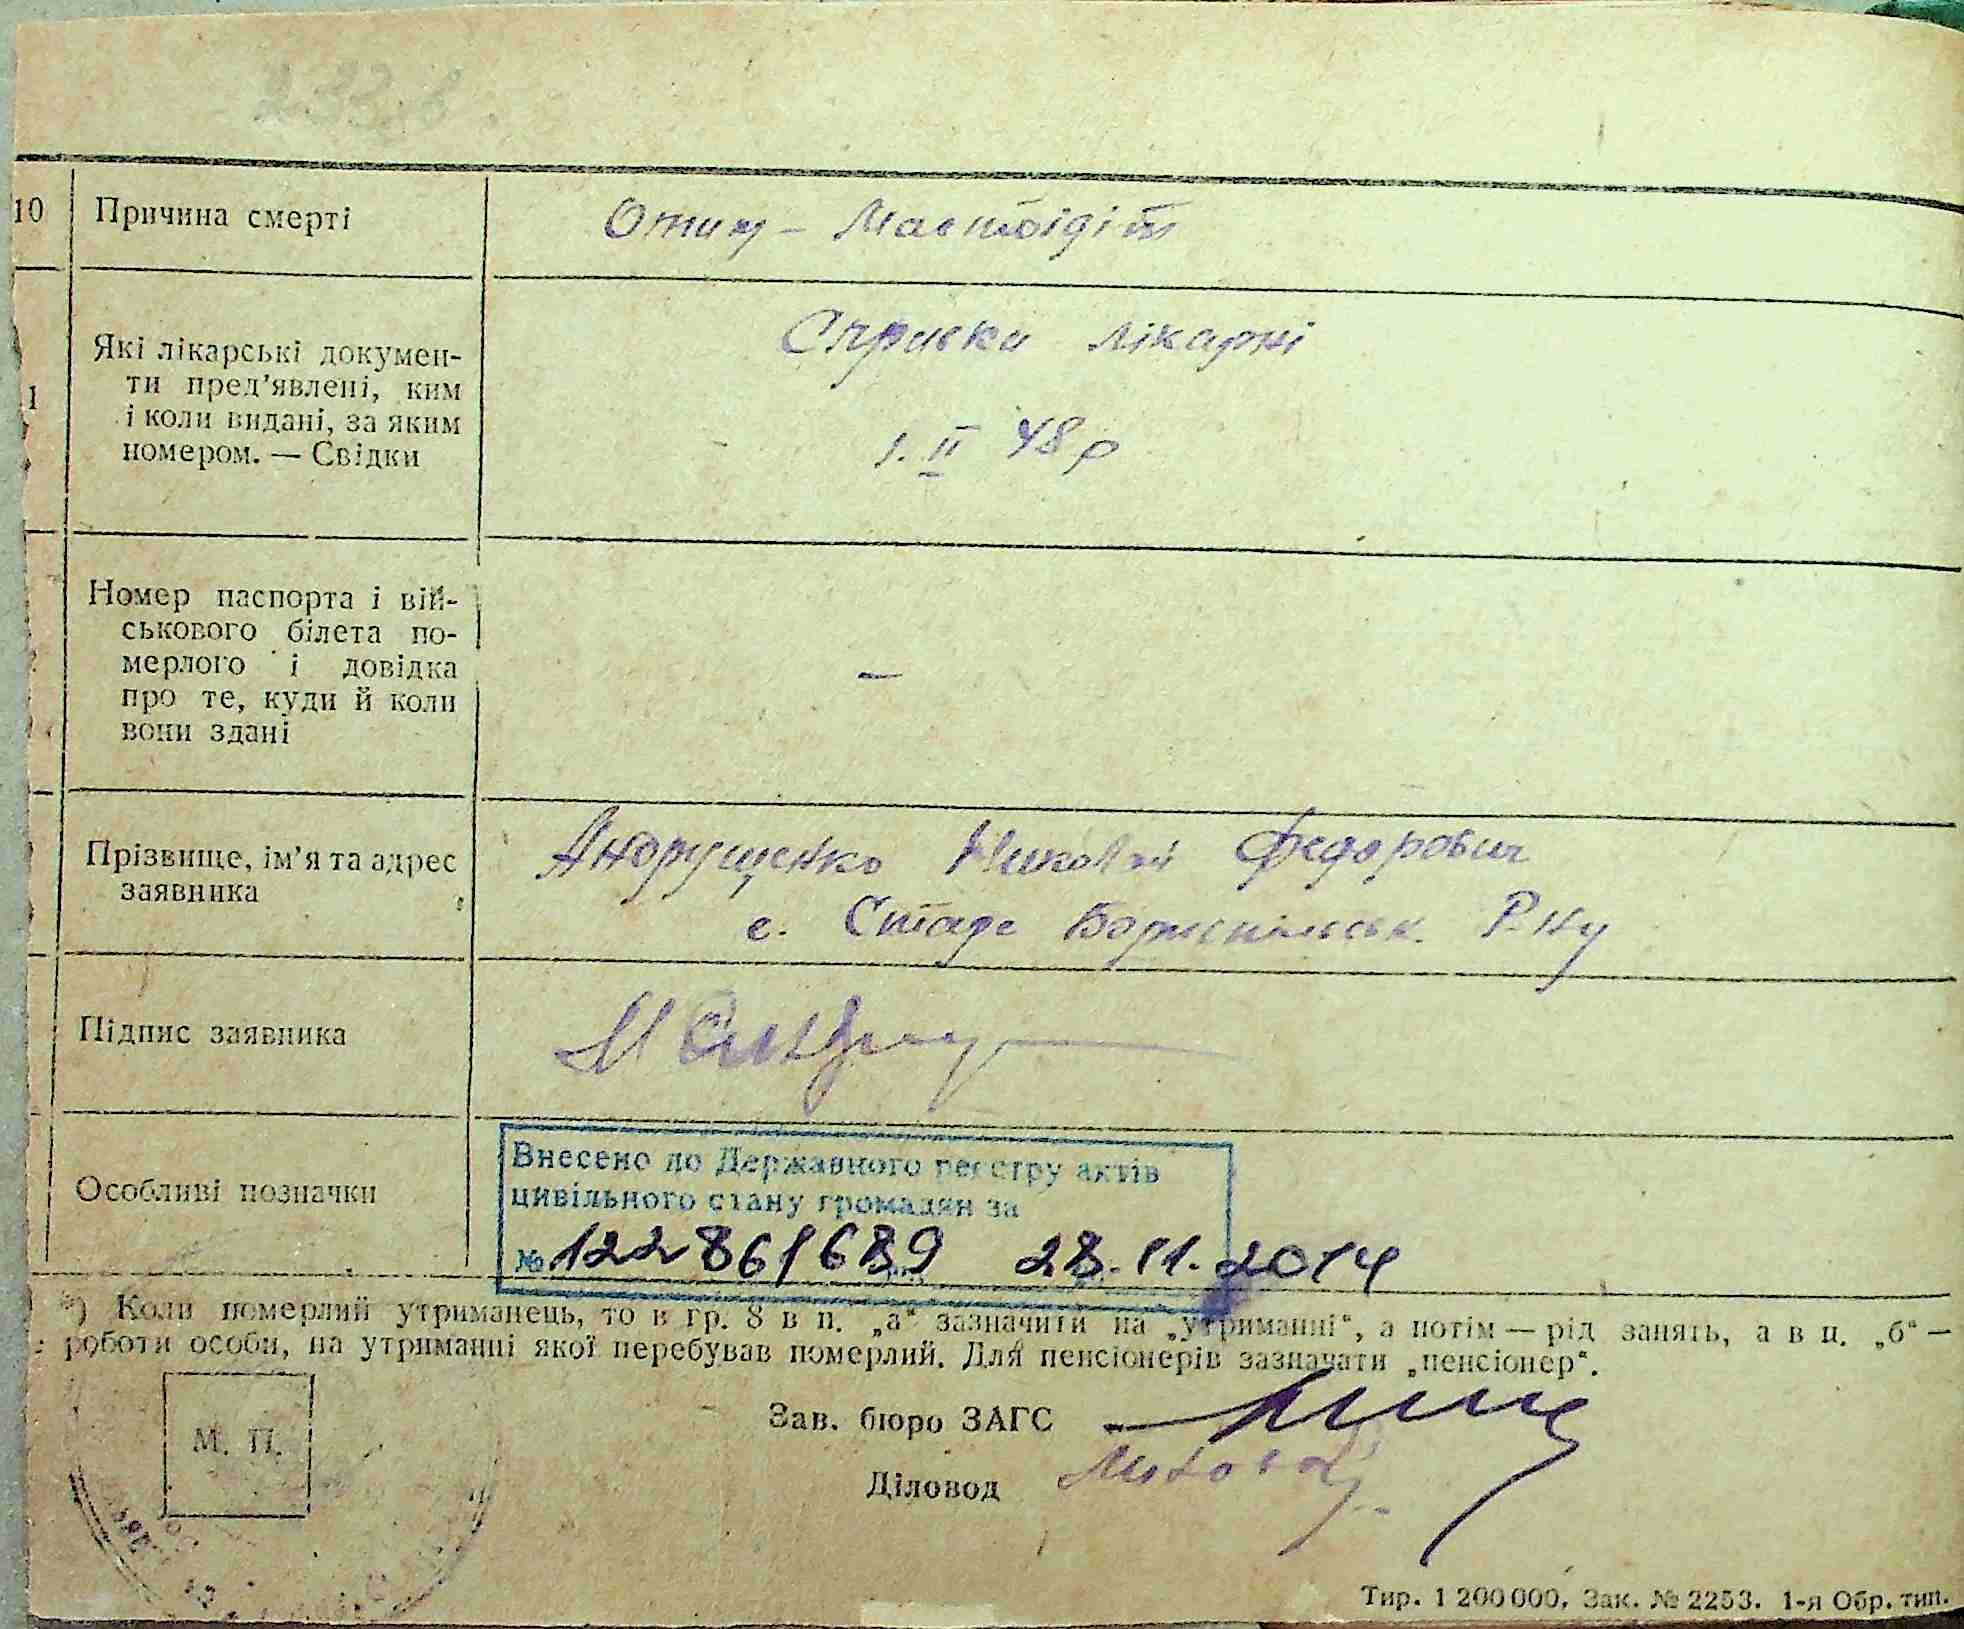 10 Причина смерті
Отит - Мастоїдіт
1 Які лікарські докумен-
ти пред’явлені, ким
і коли видані, за яким
номером. — Свідки
лікарні
1. II 48 р
Номер паспорта і вій-
ськового білета по-
мерлого і довідка
про те, куди й коли
вони здані
—
Прізвище, ім’я та адрес
заявника
Андрущенко Николай Федорович
с. Бориспільськ. Р-ну
Підпис заявника
Особливі позначки
Внесено до Державного реєстру актів
цивільного стану громадян за
№ 122861689 28.11.2014
*) Коли померлий утриманець, то в гр. 8 в п. „а“ зазначити на „утриманні“, а потім — рід занять, а в п. „б“ —
роботи особи, на утриманні якої перебував померлий. Для пенсіонерів зазначати „пенсіонер“.
М. П.
Зав. бюро ЗАГС
Діловод
Тир. 1 200 000, Зак. № 2253. 1-я Обр. тип.